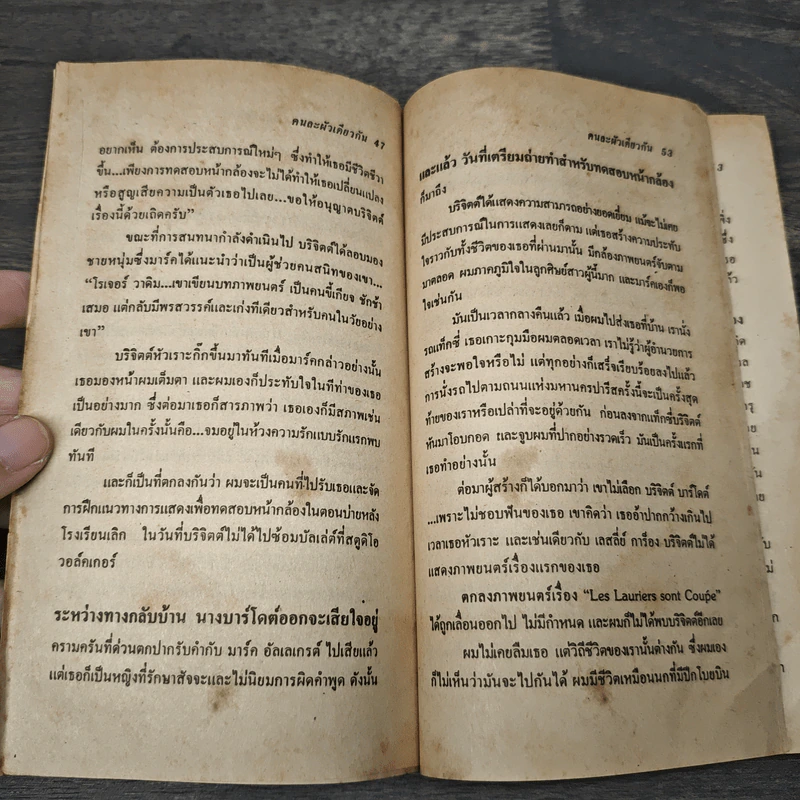 คนละผัวเดียวกัน 47
อยากเห็น ต้องการประสบการณ์ใหม่ๆ ซึ่งทำให้เธอมีชีวิตชีวา
ขึ้น...เพียงการทดสอบหน้ากล้องจะไม่ได้ทำให้เธอเปลี่ยนแปลง
หรือสูญเสียความเป็นตัวเธอไปเลย...ขอให้อนุญาตบริจิตต์
เรื่องนี้ด้วยเถิดครับ”
ขณะที่การสนทนากำลังดำเนินไป บริจิตต์ได้ลอบมอง
ชายหนุ่มซึ่งมาร์คได้แนะนำว่าเป็นผู้ช่วยคนสนิทของเขา...
“โรเจอร์ วาดิม...เขาเขียนบทภาพยนตร์ เป็นคนขี้เกียจ ชักช้า
เสมอ แต่กลับมีพรสวรรค์และเก่งทีเดียวสำหรับคนในวัยอย่าง
เขา”
บริจิตต์หัวเราะกิ๊กขึ้นมาทันทีเมื่อมาร์คกล่าวอย่างนั้น
เธอมองหน้าผมเต็มตา และผมเองก็ประทับใจในทีท่าของเธอ
เป็นอย่างมาก ซึ่งต่อมาเธอก็สารภาพว่า เธอเองก็มีสภาพเช่น
เดียวกับผมในครั้งนั้นคือ...จมอยู่ในห้วงความรักแบบรักแรกพบ
ทันที
และก็เป็นที่ตกลงกันว่า ผมจะเป็นคนที่ไปรับเธอและจัด
การฝึกแนวทางการแสดงเพื่อทดสอบหน้ากล้องในตอนบ่ายหลัง
โรงเรียนเลิก ในวันที่บริจิตต์ไม่ได้ไปซ้อมบัลเล่ต์ที่สตูดิโอ
วอล์คเกอร์
ระหว่างทางกลับบ้าน นางบาร์โดต์ออกจะเสียใจอยู่
ครามครันที่ด่วนตกปากรับคำกับ มาร์ค อัลเลเกรต์ ไปเสียแล้ว
แต่เธอก็เป็นหญิงที่รักษาสัจจะและไม่นิยมการผิดคำพูด ดังนั้น
คนละผัวเดียวกัน 53
และแล้ว วันที่เตรียมถ่ายทำสำหรับทดสอบหน้ากล้อง
ก็มาถึง
บริจิตต์ได้แสดงความสามารถอย่างยอดเยี่ยม แม้จะไม่เคย
มีประสบการณ์ในการแสดงเลยก็ตาม แต่เธอสร้างความประทับ
ใจราวกับทั้งชีวิตของเธอที่ผ่านมานั้น มีกล้องภาพยนตร์จับตาม
มาตลอด ผมภาคภูมิใจในลูกศิษย์สาวผู้นี้มาก และมาร์คเองก็พอ
ใจเช่นกัน
มันเป็นเวลากลางคืนแล้ว เมื่อผมไปส่งเธอที่บ้าน เรานั่ง
รถแท็กซี่ เธอเกาะกุมมือผมตลอดเวลา เราไม่รู้ว่าผู้อำนวยการ
สร้างจะพอใจหรือไม่ แต่ทุกอย่างก็เสร็จเรียบร้อยลงไปแล้ว
การนั่งรถไปตามถนนแห่งมหานครปารีสครั้งนี้จะเป็นครั้งสุด
ท้ายของเราหรือเปล่าที่จะอยู่ด้วยกัน ก่อนลงจากแท็กซี่บริจิตต์
หันมาโอบกอด และจูบผมที่ปากอย่างรวดเร็ว มันเป็นครั้งแรกที่
เธอทำอย่างนั้น
ต่อมาผู้สร้างก็ได้บอกมาว่า เขาไม่เลือก บริจิตต์ บาร์โดต์
...เพราะไม่ชอบฟันของเธอ เขาคิดว่า เธออ้าปากกว้างเกินไป
เวลาเธอหัวเราะ และเช่นเดียวกับ เลสลี่ย์ การ็อง บริจิตต์ไม่ได้
แสดงภาพยนตร์เรื่องแรกของเธอ
ตกลงภาพยนตร์เรื่อง “Les Lauriers sont Coupé”
ได้ถูกเลื่อนออกไป ไม่มีกำหนด และผมก็ไม่ได้พบบริจิตต์อีกเลย
ผมไม่เคยลืมเธอ แต่วิถีชีวิตของเรานั้นต่างกัน ซึ่งผมเอง
ก็ไม่เห็นว่ามันจะไปกันได้ ผมมีชีวิตเหมือนนกที่มีปีกโบยบิน